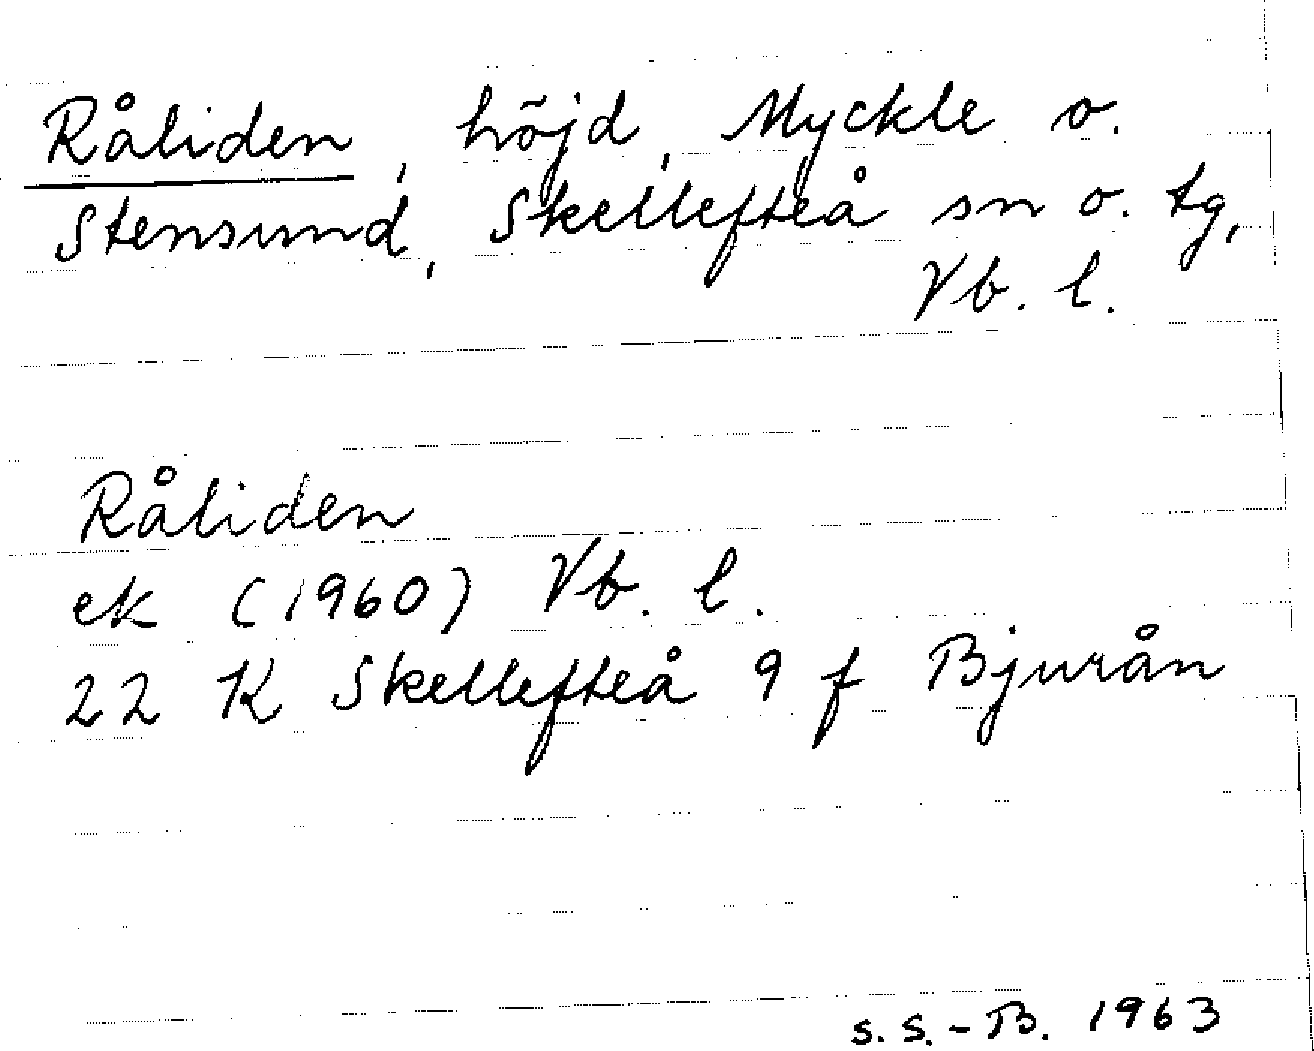 Råliden, höjd, Myckle o.
Stensund, Skellefteå sn o. tg,
Vb. l.
Råliden
ek (1960) Vb. l.
22 K Skellefteå 9 f Bjurån
S. S.-B. 1963